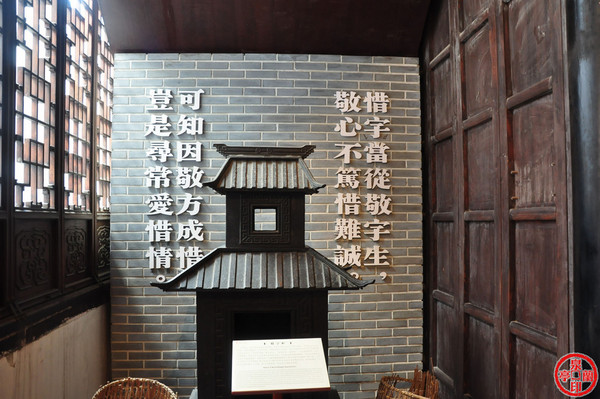 惜字當從敬字生，
敬心不篤惜難誠。
可知因敬方成惜
豈是尋常愛惜情。